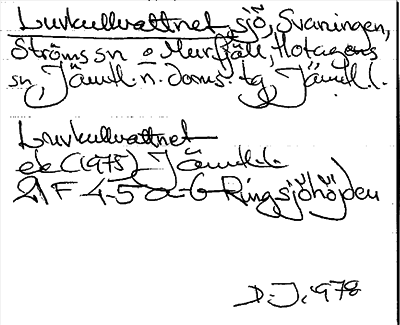 Luvkullvattnet, sjö, Svaningen,
Ströms sn o Murfjäll, Hotagens
sn, Jämtl. n. doms. tg, Jämtl. l.
Luvkullvattnet
ek (1975) Jämtl. l.
21F 4-5 a-b Ringsjöhöjden
D.J. 1978